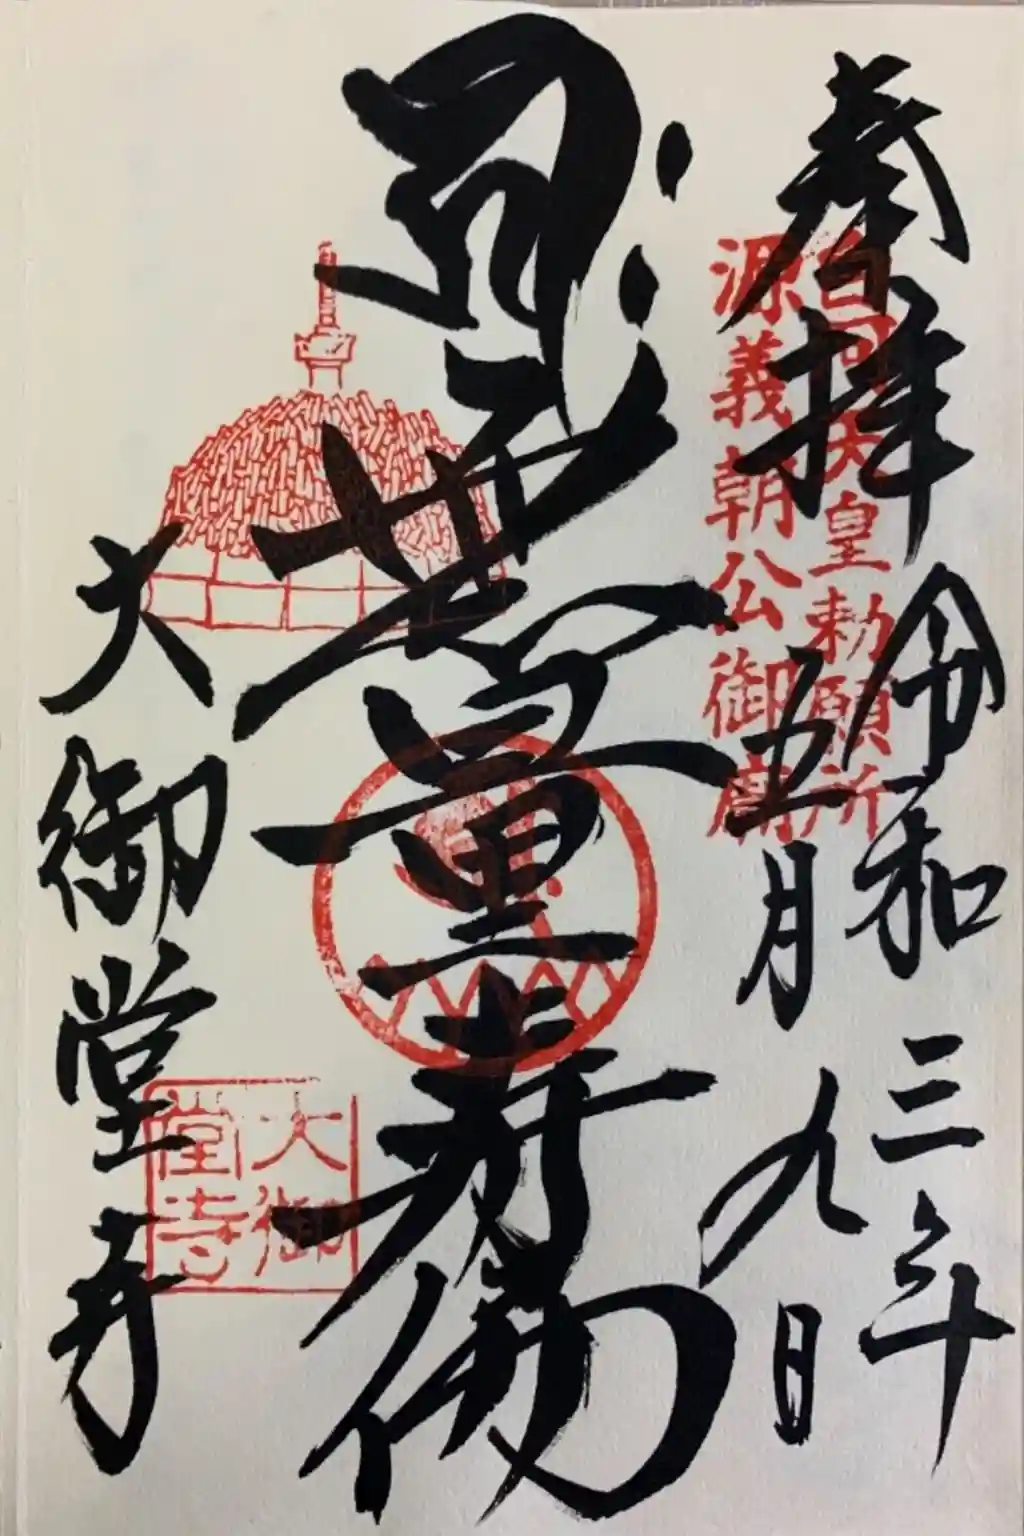 奉拝
令和三年
五月九日
白河天皇勅願所
源義朝公御廟
無量寿佛
大御堂寺
大御堂寺